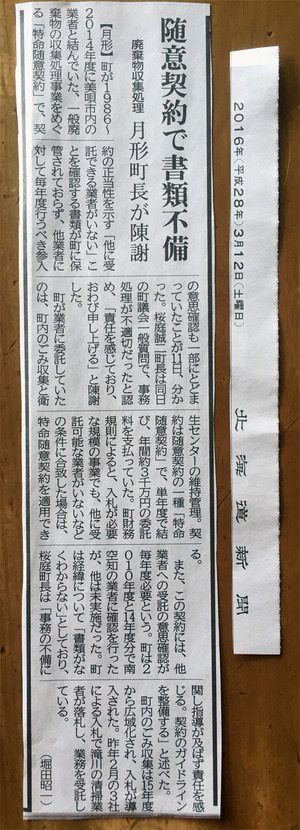 随意契約で書類不備
廃棄物収集処理 月形町長が陳謝
【月形】町が1986~
2014年度に美唄市内の
業者と結んでいた、一般廃
棄物の収集処理事業をめぐ
る「特命随意契約」で、契
約の正当性を示す「他に受
託できる業者がいない」こ
とを確認する書類が町に保
管されておらず、他業者に
対して毎年度行うべき参入
の意思確認も一部にとどま
っていたことが11日、分か
った。桜庭誠二町長は同日
の町議会一般質問で、事務
処理が不適切だったと認
め、「責任を感じており、
おわび申し上げる」と陳謝
した。
町が業者に委託していた
のは、町内のごみ収集と衛
生センターの維持管理。契
約は随意契約の一種「特命
随意契約」で、単年度で結
び、年間約3千万円の委託
料を支払っていた。町財務
規則によると、入札が必要
な規模の事業でも、他に受
託可能な業者がいないなど
の条件に合致した場合は、
特命随意契約を適用でき
る。
また、この契約には、他
業者への受託の意思確認が
毎年度必要という。町は2
010年度と14年度分で南
空知の業者に確認を行った
が、他は未実施だった。町
は経緯について「書類がな
くわからない」としており、
桜庭町長は「事務の不備に
関し指導が及ばず責任を感
じる。契約のガイドライン
を整備する」と述べた。
町内のごみ収集は15年度
から広域化され、入札が導
入された。昨年2月の3社
による入札で滝川の清掃業
者が落札し、業務を受託し
ている。
(堀田昭一)
2016年(平成28年)3月12日(土曜日)
北海道新聞